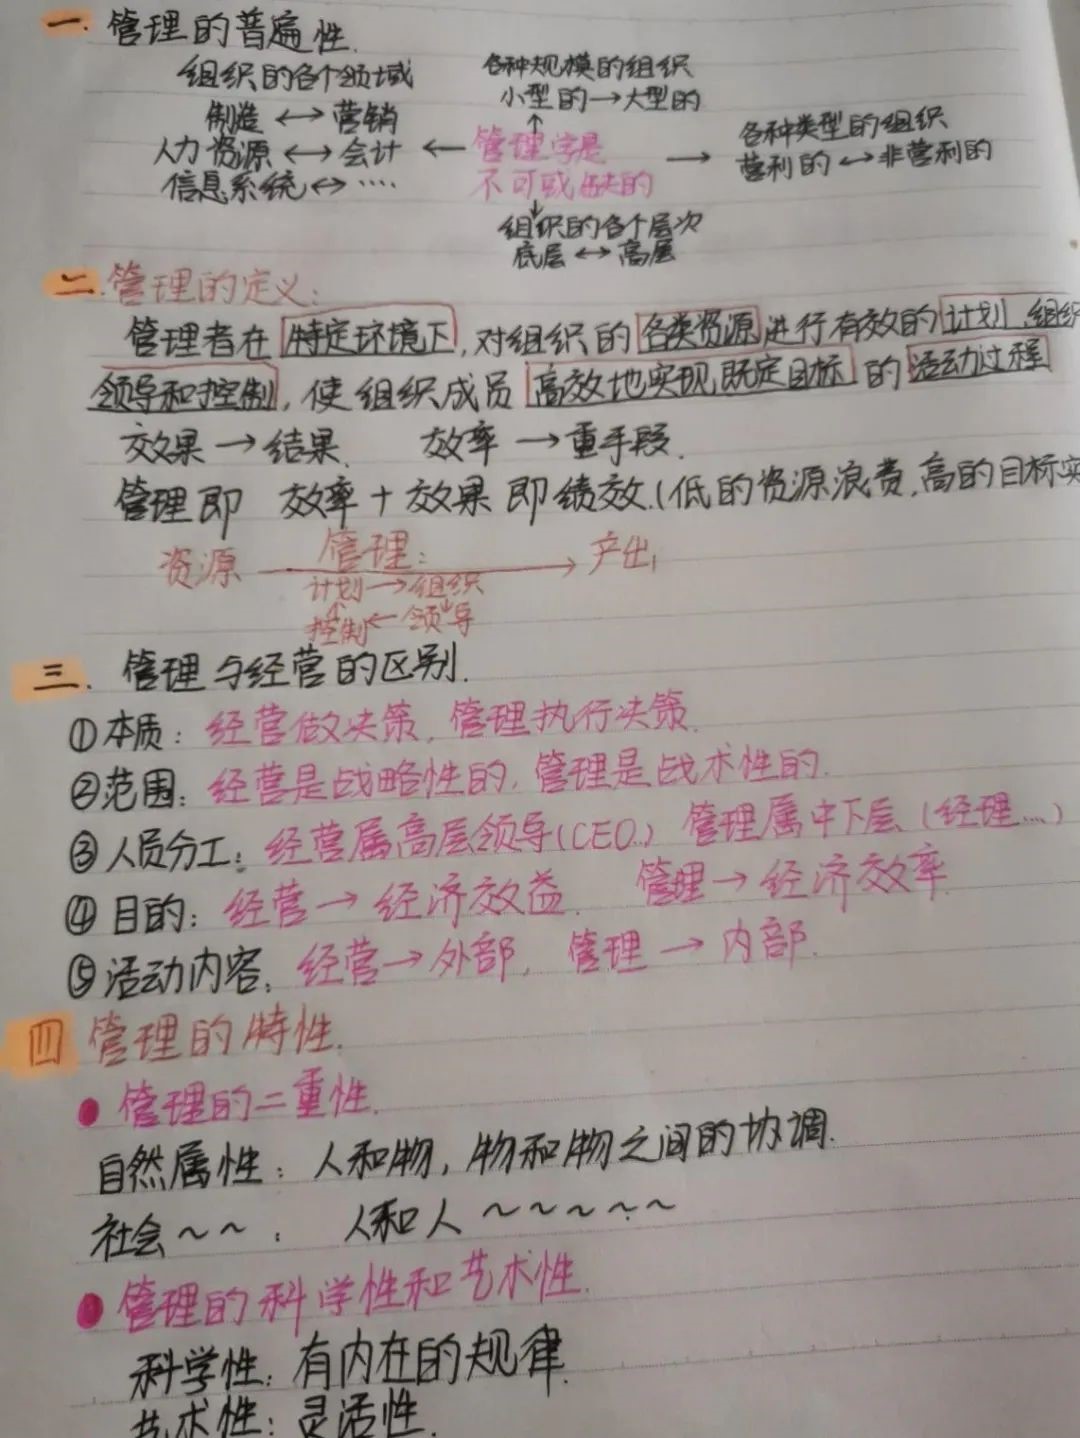 一. 管理的普遍性.
组织的各个领域
各种规模的组织
小型的→大型的
制造 ↔ 营销
人力资源 ↔ 会计 ← 管理学是 →
各种类型的组织
营利的 ↔ 非营利的
信息系统 ↔ ....
不可或缺的
组织的各个层次
底层 ↔ 高层
二. 管理的定义:
管理者在特定环境下, 对组织的各类资源进行有效的计划、组织
领导和控制, 使组织成员高效地实现既定目标的活动过程
效果 → 结果. 效率 → 重手段.
管理即 效率 + 效果 即绩效.(低的资源浪费,高的目标实
资源 管理: → 产出
计划 → 组织
控制 ← 领导
三. 管理与经营的区别.
①本质: 经营做决策, 管理执行决策.
②范围: 经营是战略性的, 管理是战术性的.
③人员分工: 经营属高层领导(CEO..) 管理属中下层 (经理....)
④目的: 经营 → 经济效益. 管理 → 经济效率.
⑤活动内容: 经营 → 外部, 管理 → 内部.
四 管理的特性.
● 管理的二重性.
自然属性: 人和物, 物和物之间的协调.
社会~~: 人和人~~~~~
● 管理的科学性和艺术性.
科学性: 有内在的规律.
艺术性: 灵活性.